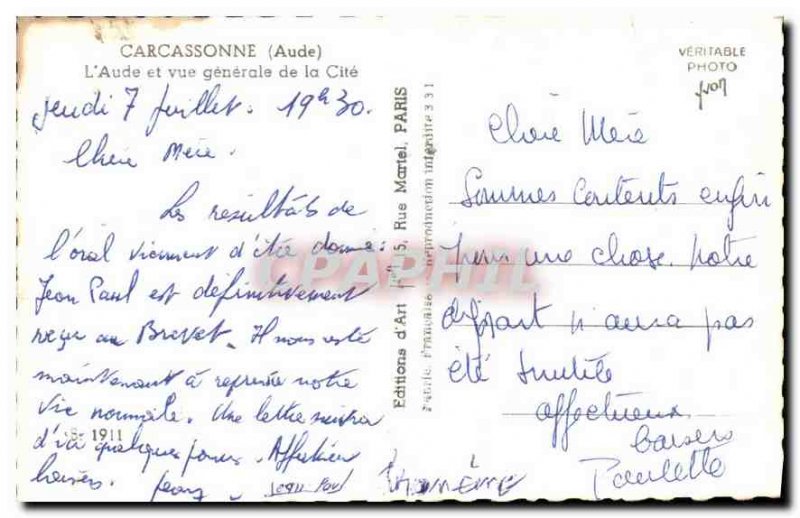 CARCASSONNE (Aude)
L'Aude et vue générale de la Cité
Jeudi 7 Juillet. 19h30.
Chère Mère.
Les résultats de
l'oral viennent d'être donnés:
Jean Paul est définitivement
reçu au Brevet. Il nous reste
maintenant à reprendre notre
vie normale. Une lettre suivra
d'ici quelques jours. Affectueux
baisers.
Jean Paul
1911
Editions d'Art 15, Rue Martel, PARIS
Fabric. Française Reproduction interdite 331
CPAPHIL
VÉRITABLE
PHOTO
Chère Mère
Sommes contents enfin
pour une chose. Notre
départ n'aura pas
été inutile
affectueux
baisers
Paulette